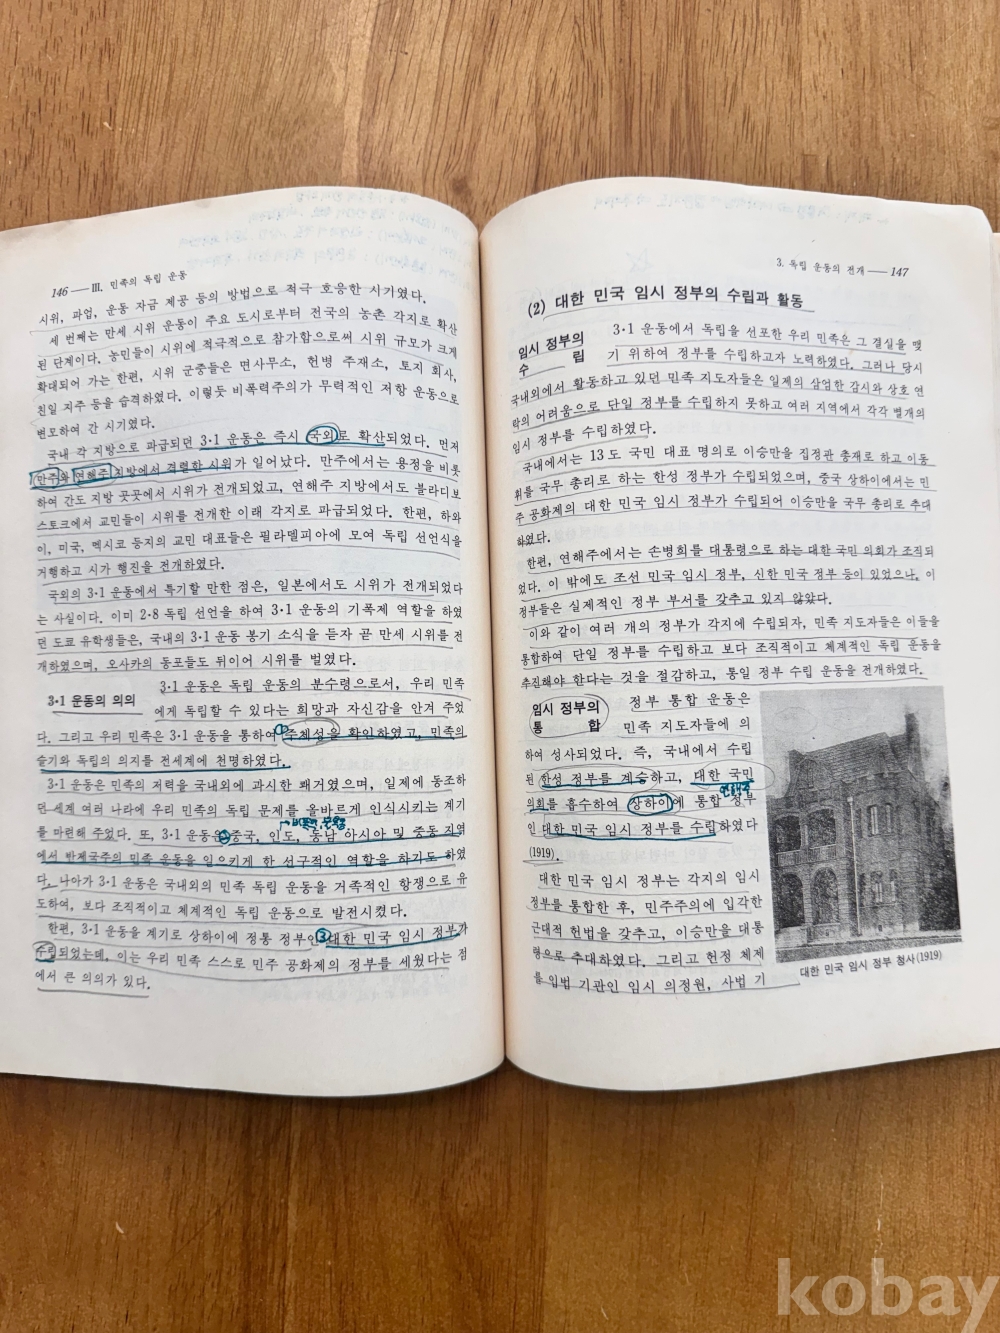 146 — Ⅲ. 민족의 독립 운동
시위, 파업, 운동 자금 제공 등의 방법으로 적극 호응한 시기였다.
세 번째는 만세 시위 운동이 주요 도시로부터 전국의 농촌 각지로 확산
된 단계이다. 농민들이 시위에 적극적으로 참가함으로써 시위 규모가 크게
확대되어 가는 한편, 시위 군중들은 면사무소, 헌병 주재소, 토지 회사,
친일 지주 등을 습격하였다. 이렇듯 비폭력주의가 무력적인 저항 운동으로
변모하여 간 시기였다.
국내 각 지방으로 파급되던 3·1 운동은 즉시 국외로 확산되었다. 먼저
만주와 연해주 지방에서 격렬한 시위가 일어났다. 만주에서는 용정을 비롯
하여 간도 지방 곳곳에서 시위가 전개되었고, 연해주 지방에서도 블라디보
스토크에서 교민들이 시위를 전개한 이래 각지로 파급되었다. 한편, 하와
이, 미국, 멕시코 등지의 교민 대표들은 필라델피아에 모여 독립 선언식을
거행하고 시가 행진을 전개하였다.
국외의 3·1 운동에서 특기할 만한 점은, 일본에서도 시위가 전개되었다
는 사실이다. 이미 2·8 독립 선언을 하여 3·1 운동의 기폭제 역할을 하였
던 도쿄 유학생들은, 국내의 3·1 운동 봉기 소식을 듣자 곧 만세 시위를 전
개하였으며, 오사카의 동포들도 뒤이어 시위를 벌였다.
3·1 운동의 의의 3·1 운동은 독립 운동의 분수령으로서, 우리 민족
에게 독립할 수 있다는 희망과 자신감을 안겨 주었
다. 그리고 우리 민족은 3·1 운동을 통하여 ① 주체성을 확인하였고, 민족의
슬기와 독립의 의지를 전세계에 천명하였다.
3·1 운동은 민족의 저력을 국내외에 과시한 쾌거였으며, 일제에 동조하
던 세계 여러 나라에 우리 민족의 독립 문제를 올바르게 인식시키는 계기
를 마련해 주었다. 또, 3·1 운동은 ② 중국, 인도, 동남 아시아 및 중동 지역
에서 반제국주의 민족 운동을 일으키게 한 선구적인 역할을 하기도 하였
다. 나아가 3·1 운동은 국내외의 민족 독립 운동을 거족적인 항쟁으로 유
도하여, 보다 조직적이고 체계적인 독립 운동으로 발전시켰다.
한편, 3·1 운동을 계기로 상하이에 정통 정부인 ③ 대한 민국 임시 정부가
수립되었는데, 이는 우리 민족 스스로 민주 공화제의 정부를 세웠다는 점
에서 큰 의의가 있다.
3. 독립 운동의 전개 — 147
(2) 대한 민국 임시 정부의 수립과 활동
임시 정부의 수립 3·1 운동에서 독립을 선포한 우리 민족은 그 결실을 맺
기 위하여 정부를 수립하고자 노력하였다. 그러나 당시
국내외에서 활동하고 있던 민족 지도자들은 일제의 삼엄한 감시와 상호 연
락의 어려움으로 단일 정부를 수립하지 못하고 여러 지역에서 각각 별개의
임시 정부를 수립하였다.
국내에서는 13도 국민 대표 명의로 이승만을 집정관 총재로 하고 이동
휘를 국무 총리로 하는 한성 정부가 수립되었으며, 중국 상하이에서는 민
주 공화제의 대한 민국 임시 정부가 수립되어 이승만을 국무 총리로 추대
하였다.
한편, 연해주에서는 손병희를 대통령으로 하는 대한 국민 의회가 조직되
었다. 이 밖에도 조선 민국 임시 정부, 신한 민국 정부 등이 있었으나, 이
정부들은 실제적인 정부 부서를 갖추고 있지 않았다.
이와 같이 여러 개의 정부가 각지에 수립되자, 민족 지도자들은 이들을
통합하여 단일 정부를 수립하고 보다 조직적이고 체계적인 독립 운동을
추진해야 한다는 것을 절감하고, 통일 정부 수립 운동을 전개하였다.
임시 정부의 통합 정부 통합 운동은
민족 지도자들에 의
하여 성사되었다. 즉, 국내에서 수립
된 한성 정부를 계승하고, 대한 국민
연해주
의회를 흡수하여 상하이에 통합 정부
인 대한 민국 임시 정부를 수립하였다
(1919).
대한 민국 임시 정부는 각지의 임시
정부를 통합한 후, 민주주의에 입각한
근대적 헌법을 갖추고, 이승만을 대통
령으로 추대하였다. 그리고 헌정 체제
를 입법 기관인 임시 의정원, 사법 기
대한 민국 임시 정부 청사(1919)
kobay